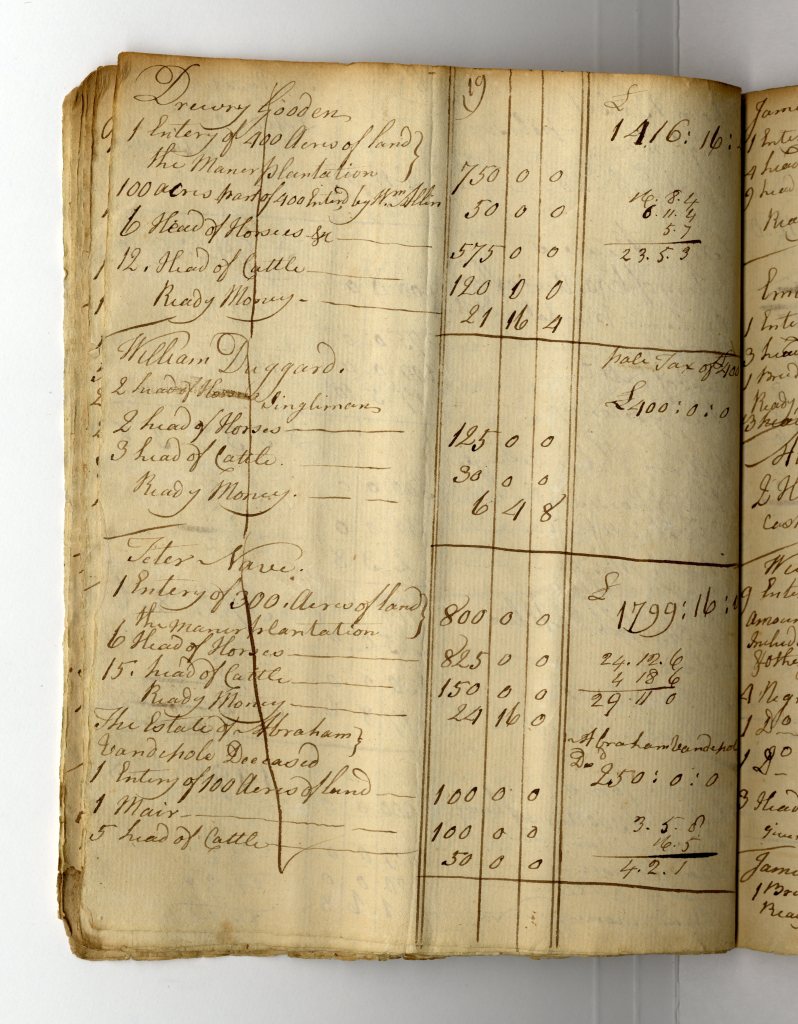 19
Drewry Gooden £
1 Entery of 400 Acres of land } 1416:16:
the Maner plantation 750 0 0
100 acres part of 400 Enterd by Wm Allen 50 0 0 16.8.4
6 Head of Horses &c 575 0 0 6.11.4
5.7
12. Head of Cattle 120 0 0 23.5.3
Ready Money - 21 16 4
William Duggard. pole Tax of £400
2 head of Horses Singliman £400:0:0
2 head of Horses 125 0 0
3 head of Cattle. 30 0 0
Ready Money. 6 4 8
Peter Nave. £
1 Entery of 300. Acres of land } 1799:16:
the Maner plantation 800 0 0
6 Head of Horses 825 0 0 24.12.6
15. head of Cattle 150 0 0 4 18 6
Ready Money 24 16 0 29 11 0
The Estate of Abraham }
Vandepole Deceased Abraham Vandepol
1 Entery of 100 Acres of land 100 0 0 D 250:0:0
1 Mair 100 0 0 3.5.8
5 head of Cattle 50 0 0 16.5
4.2.1
Jame
1 Ente
4 head
9 head
Rea
1 Ente
3 head
1
Ready
2 H
Cash
Wi
9 Ente
Amoun
Includ
& othe
4 Neg
1 Do
1 Do
3 Head
given
Jame
1 Bro
Rea